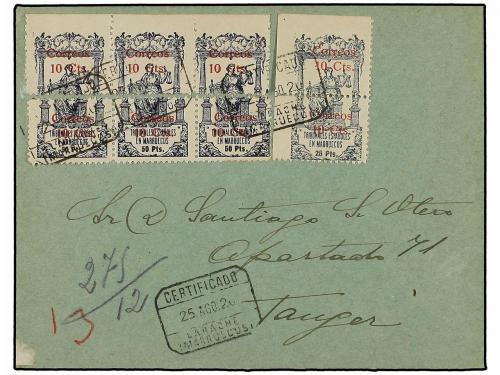 Correos Correos Correos Correos
10 Cts. 10 Cts. 10 Cts. 10 Cts.
Correos Correos Correos Correos
10 Cts. 10 Cts. 10 Cts. 10 Cts.
TRIBUNALES ESPAÑOLES
EN MARRUECOS EN MARRUECOS EN MARRUECOS
50 Pts. 50 Pts. 25 Pts.
Sr D Santiago S. Otero
Apartado 71
Tanger
275
12
13
CERTIFICADO
25 AGO.20
LARACHE
(MARRUECOS)